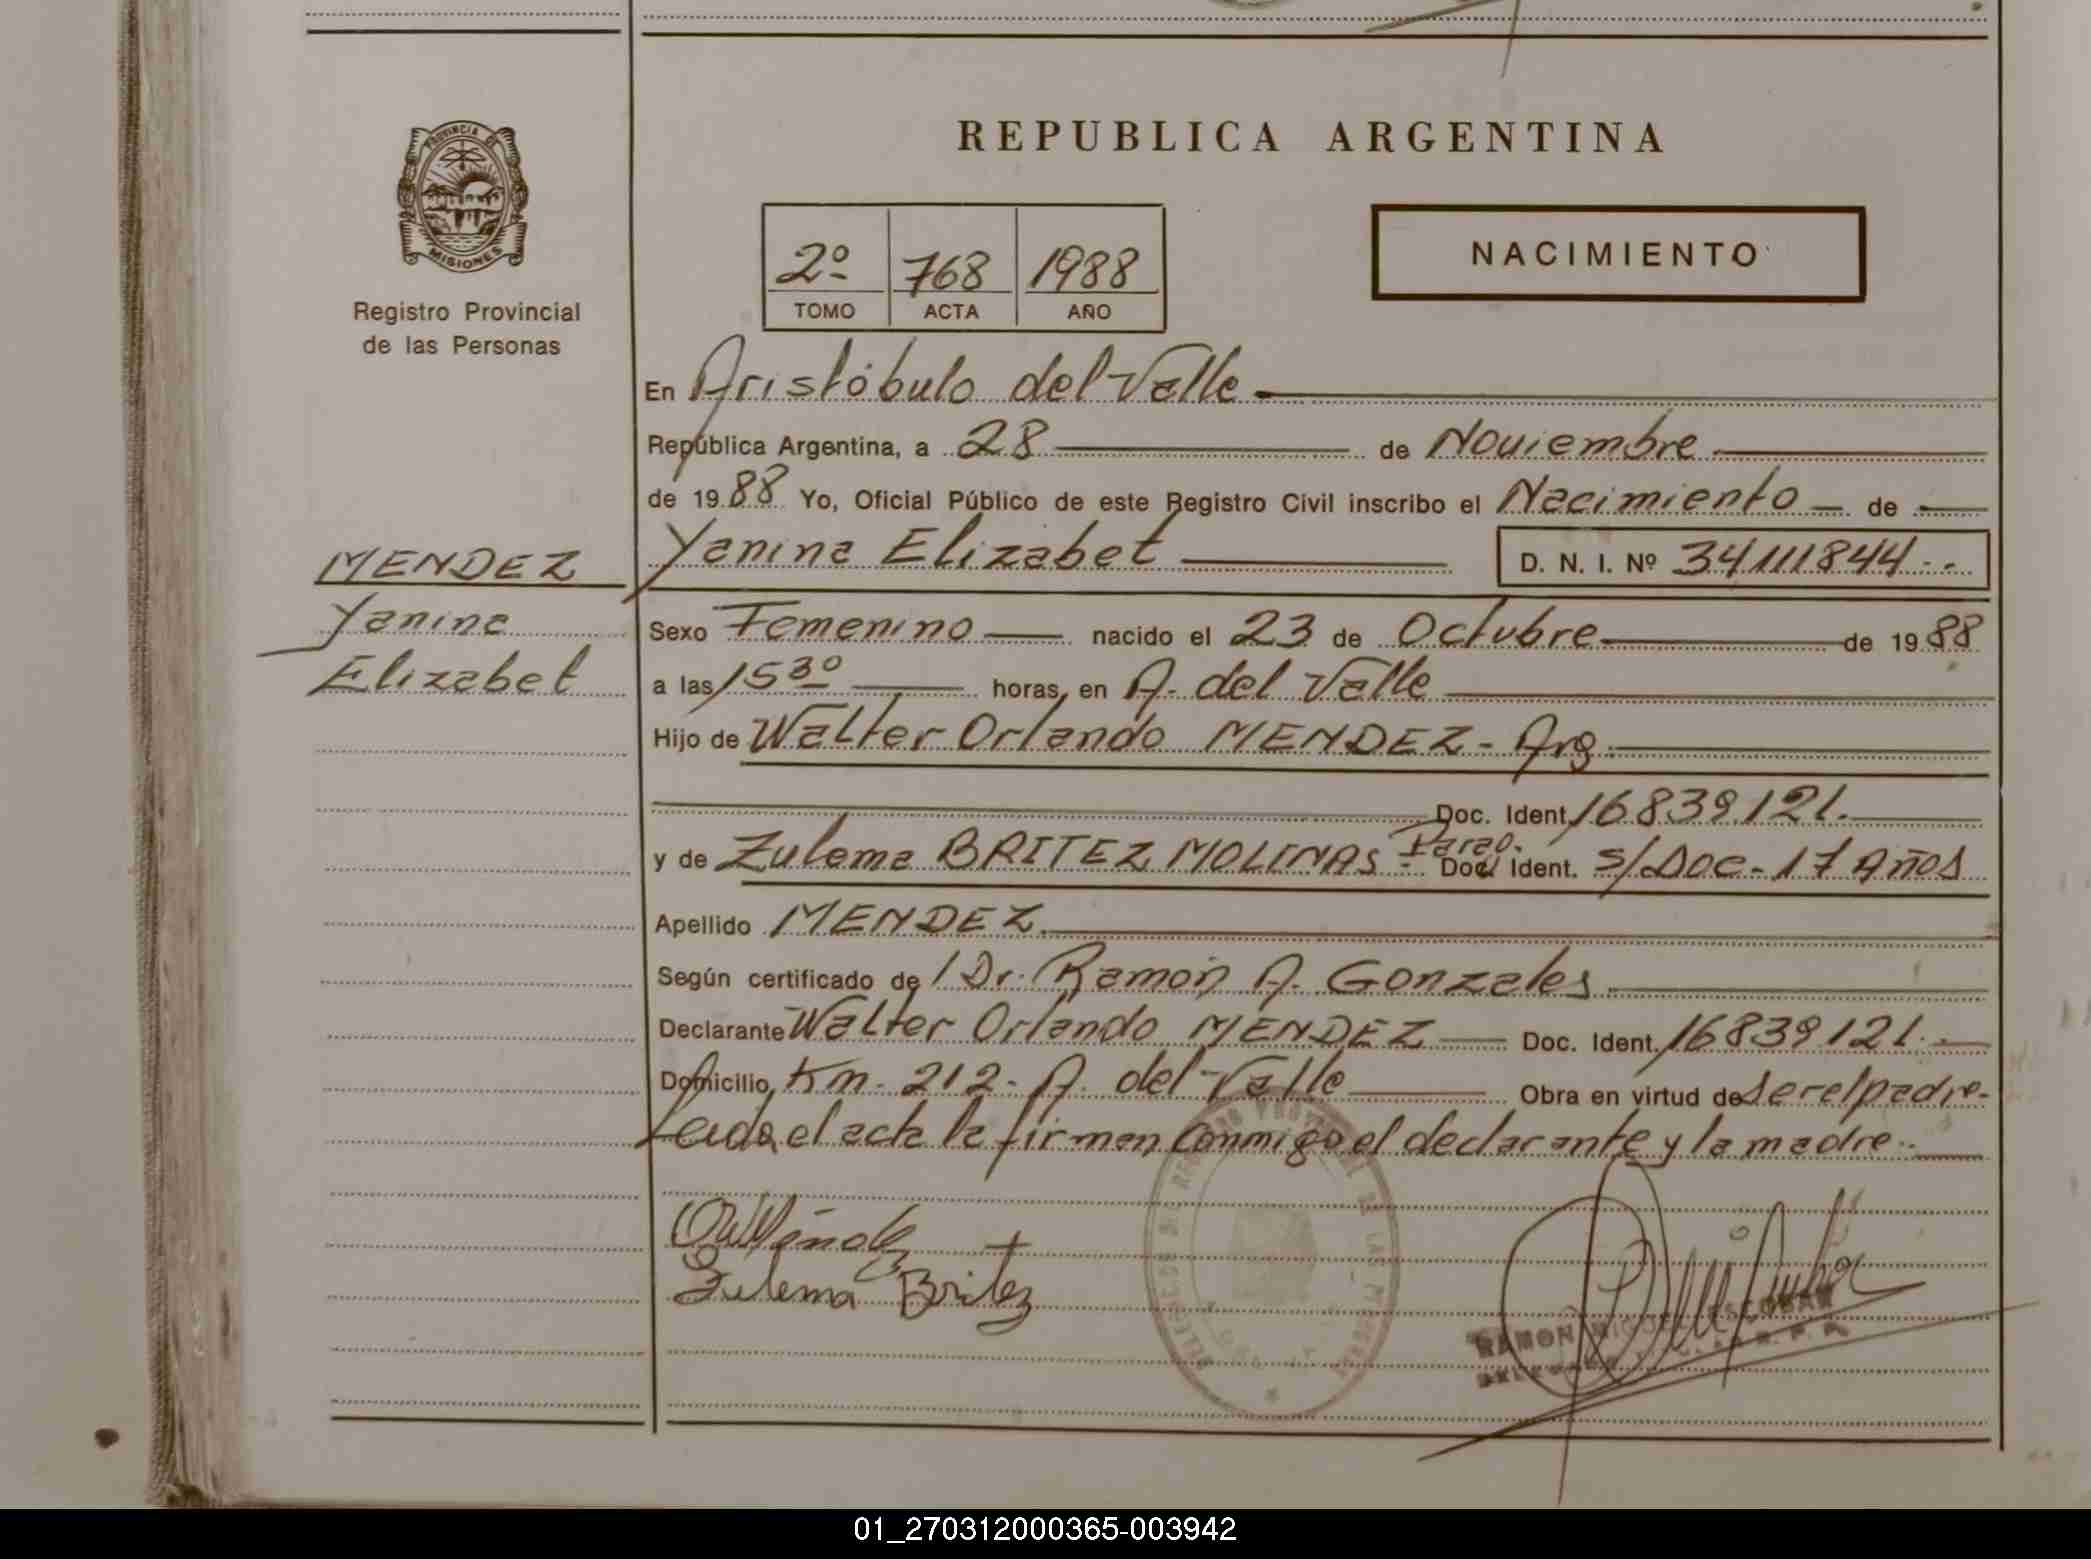 PROVINCIA DE
MISIONES
Registro Provincial
de las Personas
MENDEZ
Yanina
Elizabet
REPUBLICA ARGENTINA
2º 768 1988
TOMO ACTA AÑO
NACIMIENTO
En Aristóbulo del Valle
República Argentina, a 28 de Noviembre
de 1988 Yo, Oficial Público de este Registro Civil inscribo el Nacimiento de
Yanina Elizabet D. N. I. Nº 34111844
Sexo Femenino nacido el 23 de Octubre de 1988
a las 15 30 horas, en A. del Valle
Hijo de Walter Orlando MENDEZ - Arg.
Doc. Ident. 16839121.
y de Zulema BRITEZ MOLINAS - Parag. Doc. Ident. s/Doc - 17 Años
Apellido MENDEZ
Según certificado de Dr. Ramón A. Gonzales
Declarante Walter Orlando MENDEZ Doc. Ident. 16839121.
Domicilio Km. 212 - A. del Valle Obra en virtud de ser el padre-
Leida el acta la firman conmigo el declarante y la madre.
Zulema Britez
RAMON MIGUEL ESCOBAR
01_270312000365-003942